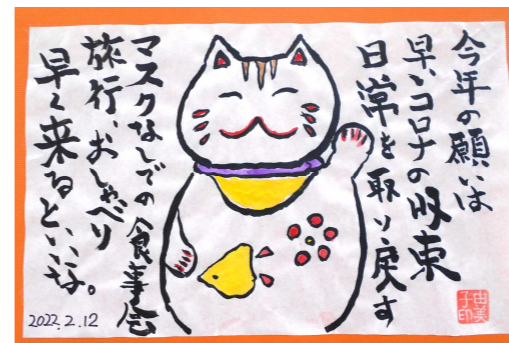 今年の願いは
早いコロナの収束
日常を取り戻す
マスクなしでの食事会
旅行、おしゃべり
早く来るといいな。
2022.2.12
由美子印